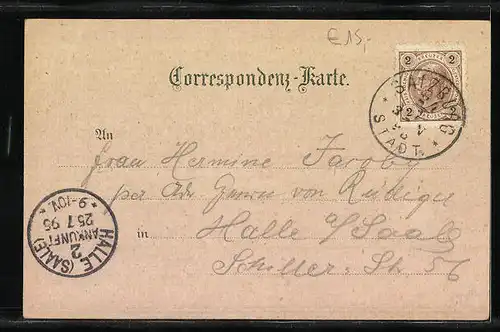 € 15,-
2 2
Correspondenz-Karte.
SALZBURG
STADT.
An
Frau Hermine Jacoby
per Adr von
in Halle a/Saale
Schiller-Str 56
HALLE (SAALE)
2
ANKUNFT
25 7 95
9-10V.